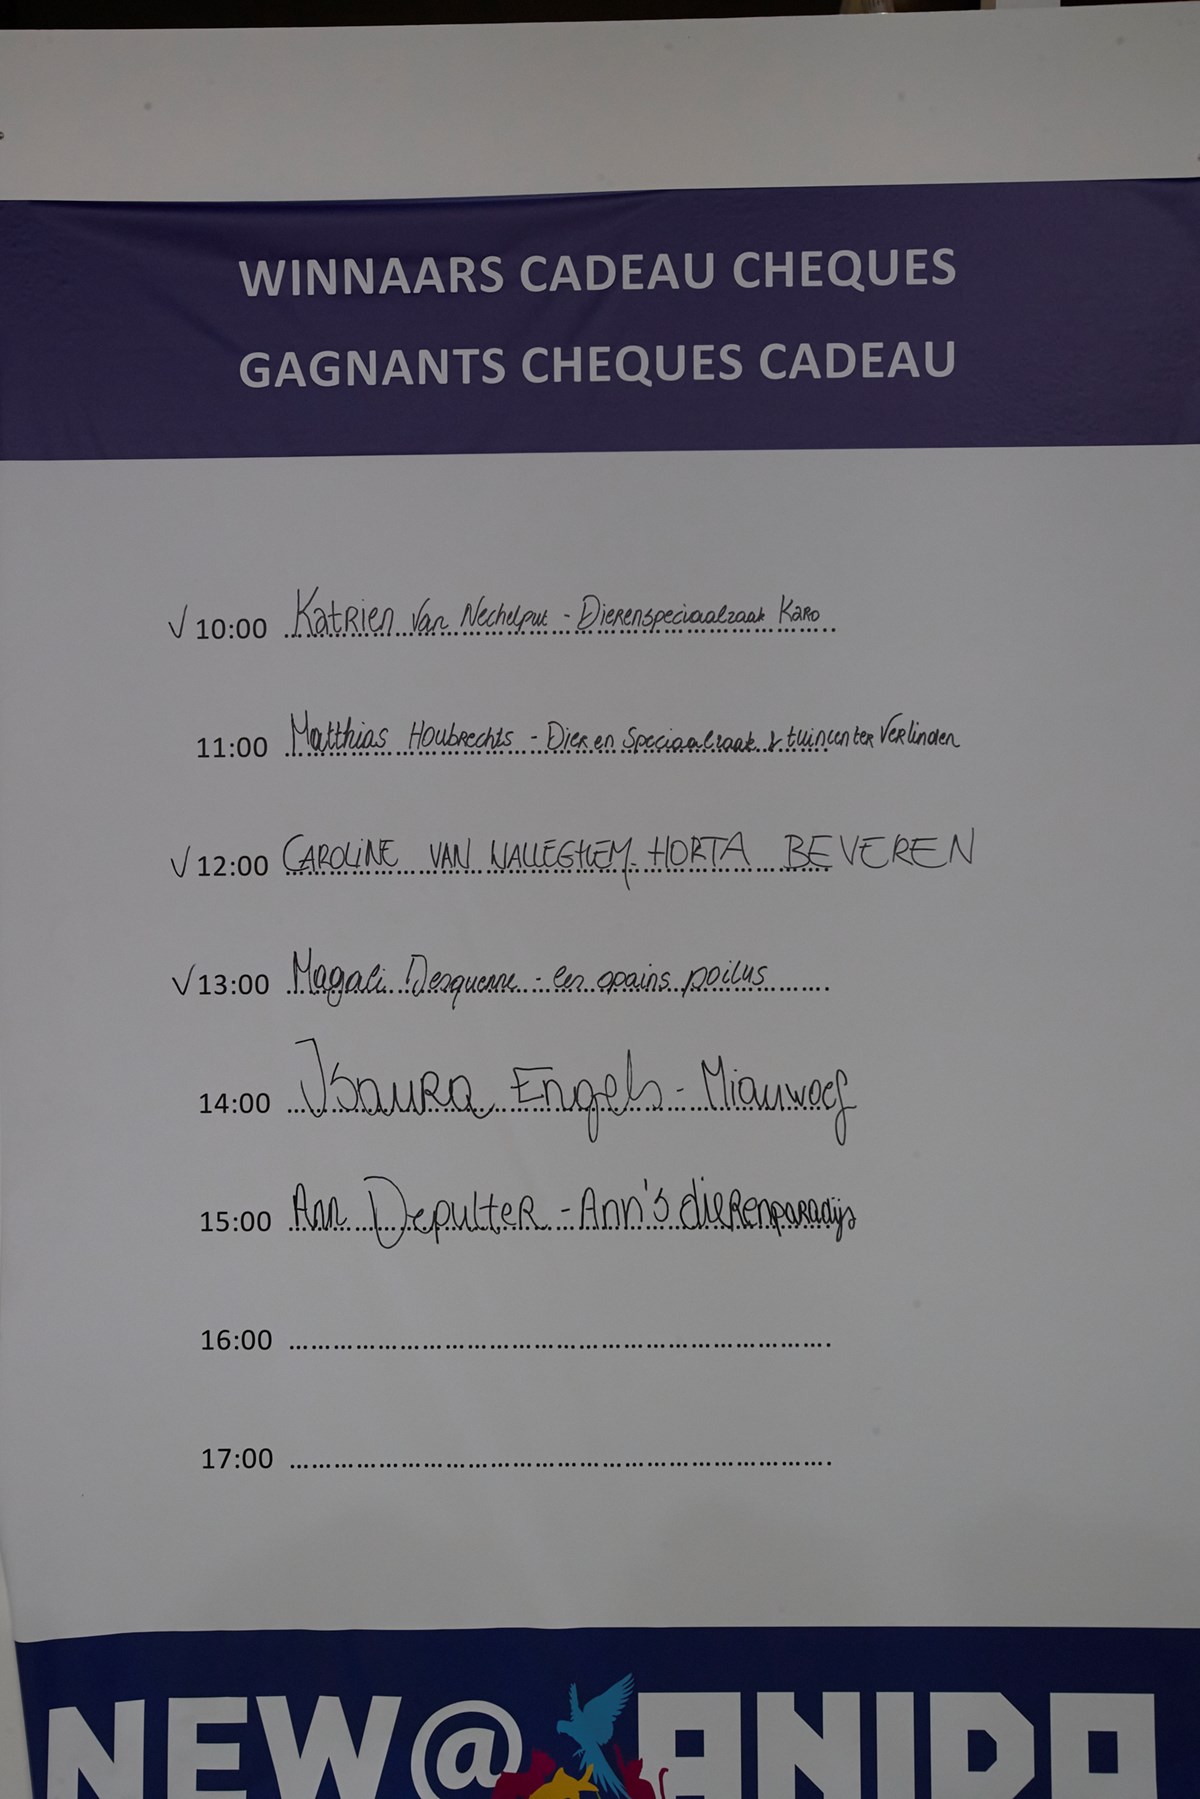 WINNAARS CADEAU CHEQUES
GAGNANTS CHEQUES CADEAU
√ 10:00 Katrien Van Nechelput - Dierenspeciaalzaak Karo
11:00 Matthias Houbrechts - Dieren Speciaalzaak & tuincenter Verlinden
√ 12:00 CAROLINE VAN WALLEGHEM - HORTA BEVEREN
√ 13:00 Magali Desquenne - les opains poilus
14:00 Isaura Engels - Miauwoef
15:00 Ann Depulter - Ann's dierenparadijs
16:00
17:00
NEW@ANIDO